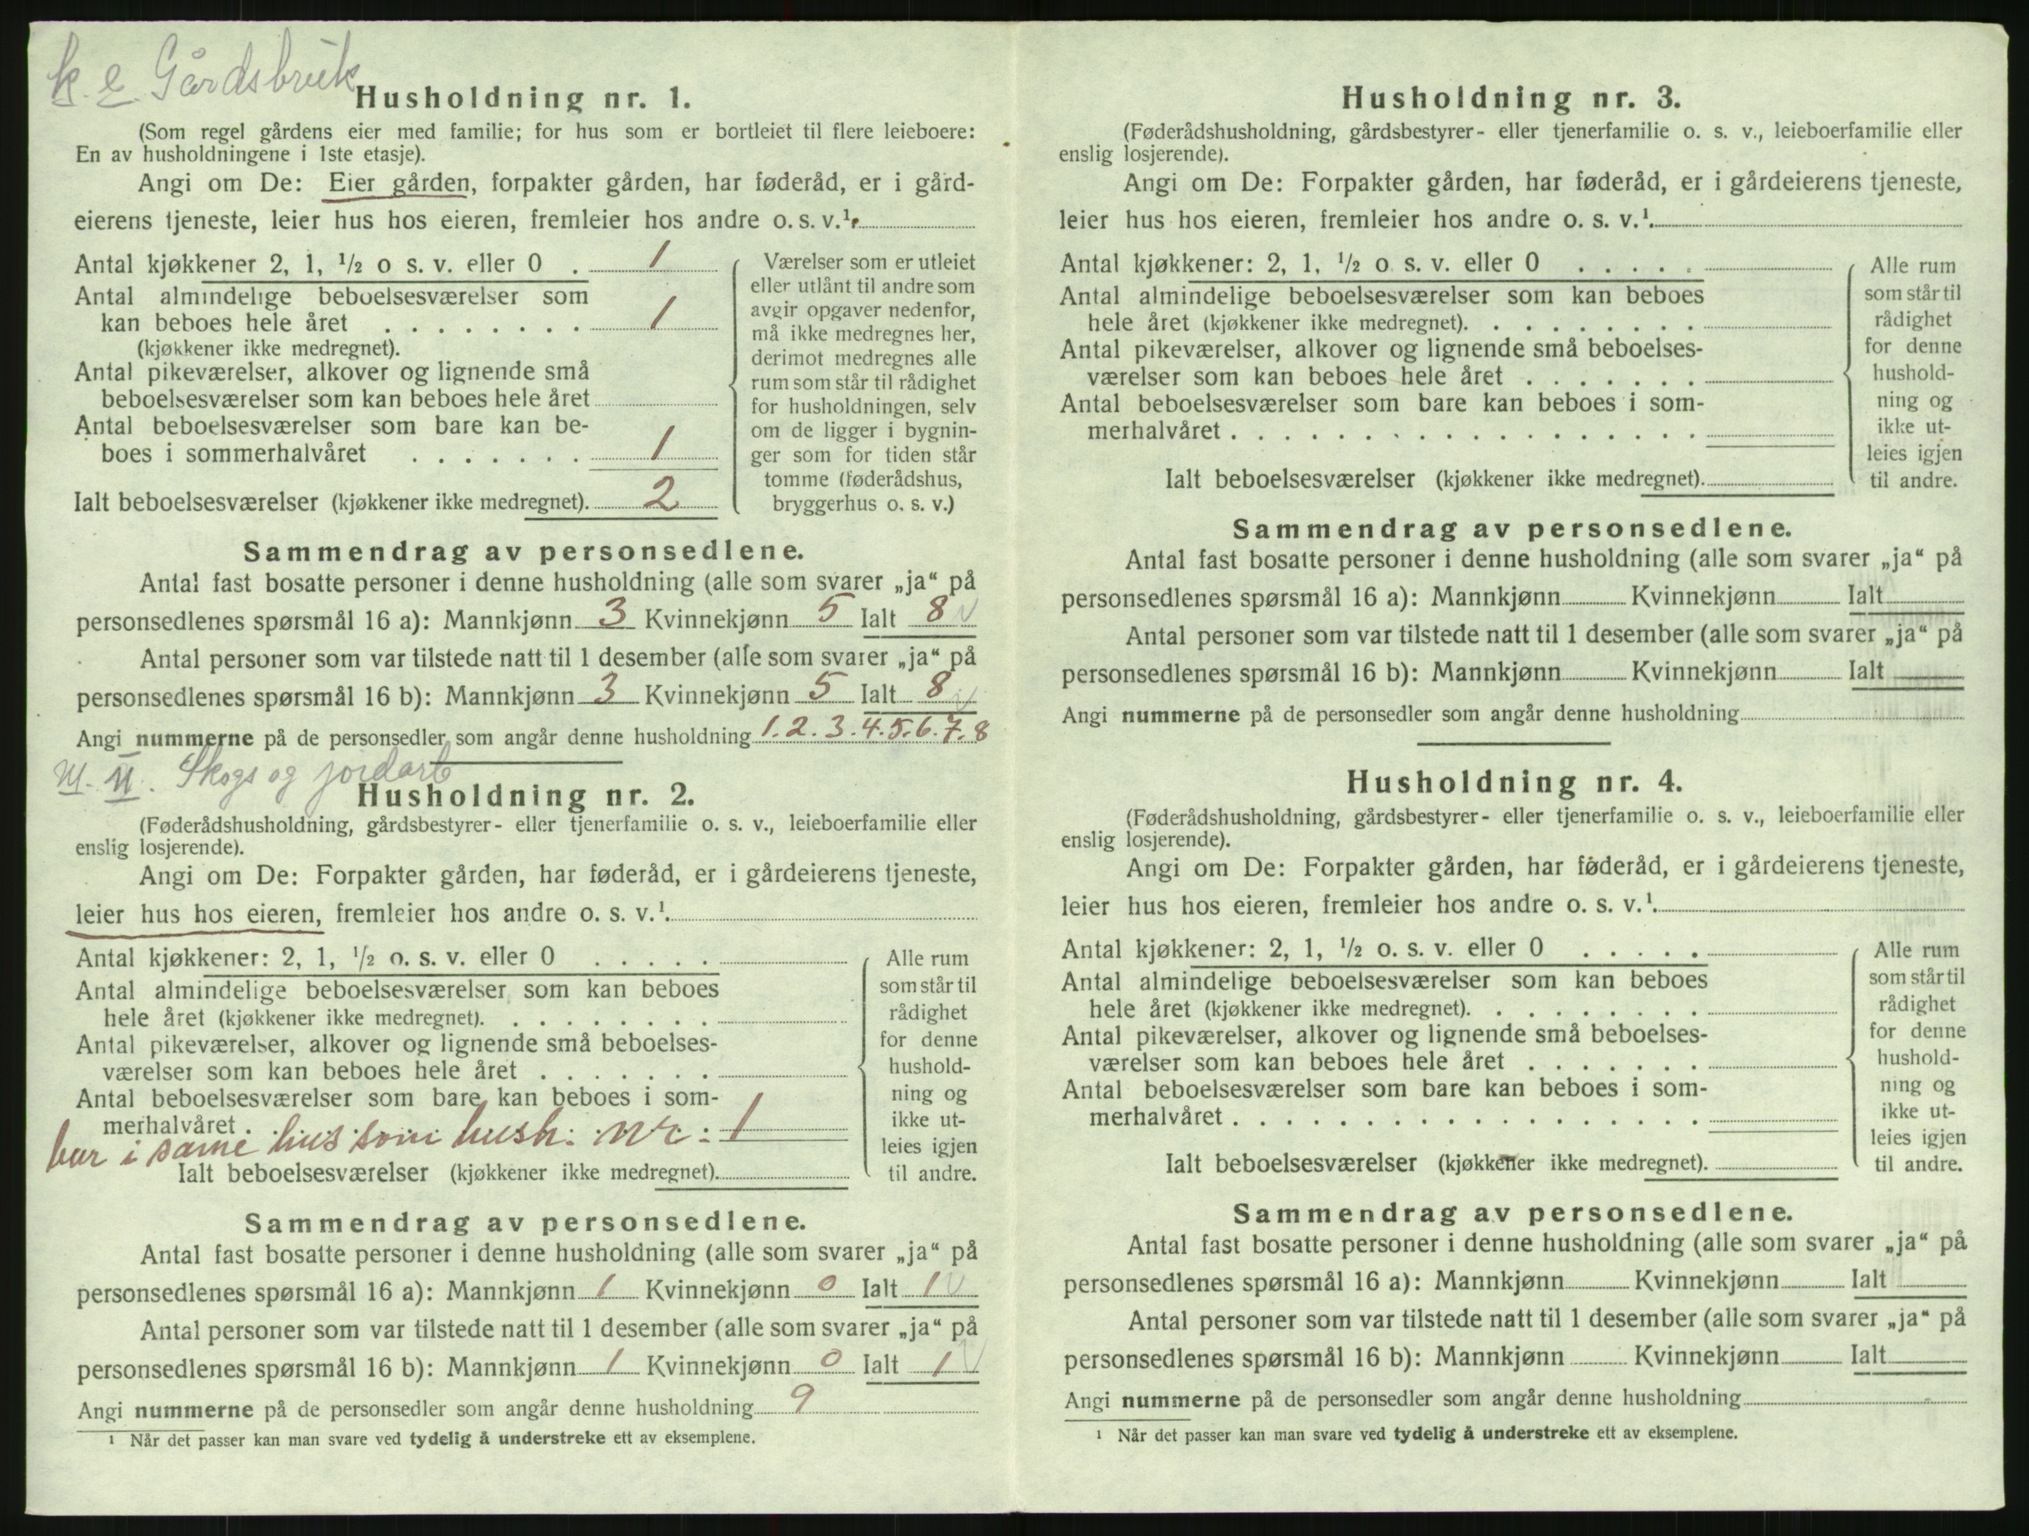 k. e. Gårdsbruk
Husholdning nr. 1.
(Som regel gårdens eier med familie; for hus som er bortleiet til flere leieboere:
En av husholdningene i 1ste etasje).
Angi om De: Eier gården, forpakter gården, har føderåd, er i gård-
eierens tjeneste, leier hus hos eieren, fremleier hos andre o. s. v.¹.
Antal kjøkkener 2, 1, ½ o s. v. eller 0 . 1
Antal almindelige beboelsesværelser som
kan beboes hele året . . . . . . . . 1
(kjøkkener ikke medregnet).
Antal pikeværelser, alkover og lignende små
beboelsesværelser som kan beboes hele året
Antal beboelsesværelser som bare kan be-
boes i sommerhalvåret . . . . . . . 1
Ialt beboelsesværelser (kjøkkener ikke medregnet). 2
Værelser som er utleiet
eller utlånt til andre som
avgir opgaver nedenfor,
må ikke medregnes her,
derimot medregnes alle
rum som står til rådighet
for husholdningen, selv
om de ligger i bygnin-
ger som for tiden står
tomme (føderådshus,
bryggerhus o. s. v.)
Sammendrag av personsedlene.
Antal fast bosatte personer i denne husholdning (alle som svarer „ja“ på
personsedlenes spørsmål 16 a): Mannkjønn 3 Kvinnekjønn 5 Ialt 8 v
Antal personer som var tilstede natt til 1 desember (alle som svarer „ja“ på
personsedlenes spørsmål 16 b): Mannkjønn 3 Kvinnekjønn 5 Ialt 8 v
Angi nummerne på de personsedler som angår denne husholdning 1. 2. 3. 4. 5. 6. 7. 8
M. U. Skogs og jordarb
Husholdning nr. 2.
(Føderådshusholdning, gårdsbestyrer- eller tjenerfamilie o. s. v., leieboerfamilie eller
enslig losjerende).
Angi om De: Forpakter gården, har føderåd, er i gårdeierens tjeneste,
leier hus hos eieren, fremleier hos andre o. s. v.¹.
Antal kjøkkener: 2, 1, ½ o. s. v. eller 0 . . . . .
Antal almindelige beboelsesværelser som kan beboes
hele året (kjøkkener ikke medregnet). . . . . . . .
Antal pikeværelser, alkover og lignende små beboelses-
værelser som kan beboes hele året . . . . . . .
Antal beboelsesværelser som bare kan beboes i som-
merhalvåret . . . . . . . . . . . . . . . . .
bur i same hus som hush. Nr: 1
Ialt beboelsesværelser (kjøkkener ikke medregnet).
Alle rum
som står til
rådighet
for denne
hushold-
ning og
ikke ut-
leies igjen
til andre.
Sammendrag av personsedlene.
Antal fast bosatte personer i denne husholdning (alle som svarer „ja“ på
personsedlenes spørsmål 16 a): Mannkjønn 1 Kvinnekjønn 0 Ialt 1 v
Antal personer som var tilstede natt til 1 desember (alle som svarer „ja“ på
personsedlenes spørsmål 16 b): Mannkjønn 1 Kvinnekjønn 0 Ialt 1 v
Angi nummerne på de personsedler som angår denne husholdning 9
¹ Når det passer kan man svare ved tydelig å understreke ett av eksemplene.
Husholdning nr. 3.
(Føderådshusholdning, gårdsbestyrer- eller tjenerfamilie o. s. v., leieboerfamilie eller
enslig losjerende).
Angi om De: Forpakter gården, har føderåd, er i gårdeierens tjeneste,
leier hus hos eieren, fremleier hos andre o. s. v.¹.
Antal kjøkkener: 2, 1, ½ o. s. v. eller 0 . . . . .
Antal almindelige beboelsesværelser som kan beboes
hele året (kjøkkener ikke medregnet). . . . . . . .
Antal pikeværelser, alkover og lignende små beboelses-
værelser som kan beboes hele året . . . . . . .
Antal beboelsesværelser som bare kan beboes i som-
merhalvåret . . . . . . . . . . . . . . . . .
Ialt beboelsesværelser (kjøkkener ikke medregnet).
Alle rum
som står til
rådighet
for denne
hushold-
ning og
ikke ut-
leies igjen
til andre.
Sammendrag av personsedlene.
Antal fast bosatte personer i denne husholdning (alle som svarer „ja“ på
personsedlenes spørsmål 16 a): Mannkjønn Kvinnekjønn Ialt
Antal personer som var tilstede natt til 1 desember (alle som svarer „ja“ på
personsedlenes spørsmål 16 b): Mannkjønn Kvinnekjønn Ialt
Angi nummerne på de personsedler som angår denne husholdning
Husholdning nr. 4.
(Føderådshusholdning, gårdsbestyrer- eller tjenerfamilie o. s. v., leieboerfamilie eller
enslig losjerende).
Angi om De: Forpakter gården, har føderåd, er i gårdeierens tjeneste,
leier hus hos eieren, fremleier hos andre o. s. v.¹.
Antal kjøkkener: 2, 1, ½ o. s. v. eller 0 . . . . .
Antal almindelige beboelsesværelser som kan beboes
hele året (kjøkkener ikke medregnet). . . . . . . .
Antal pikeværelser, alkover og lignende små beboelses-
værelser som kan beboes hele året . . . . . . .
Antal beboelsesværelser som bare kan beboes i som-
merhalvåret . . . . . . . . . . . . . . . . .
Ialt beboelsesværelser (kjøkkener ikke medregnet).
Alle rum
som står til
rådighet
for denne
hushold-
ning og
ikke ut-
leies igjen
til andre.
Sammendrag av personsedlene.
Antal fast bosatte personer i denne husholdning (alle som svarer „ja“ på
personsedlenes spørsmål 16 a): Mannkjønn Kvinnekjønn Ialt
Antal personer som var tilstede natt til 1 desember (alle som svarer „ja“ på
personsedlenes spørsmål 16 b): Mannkjønn Kvinnekjønn Ialt
Angi nummerne på de personsedler som angår denne husholdning
¹ Når det passer kan man svare ved tydelig å understreke ett av eksemplene.